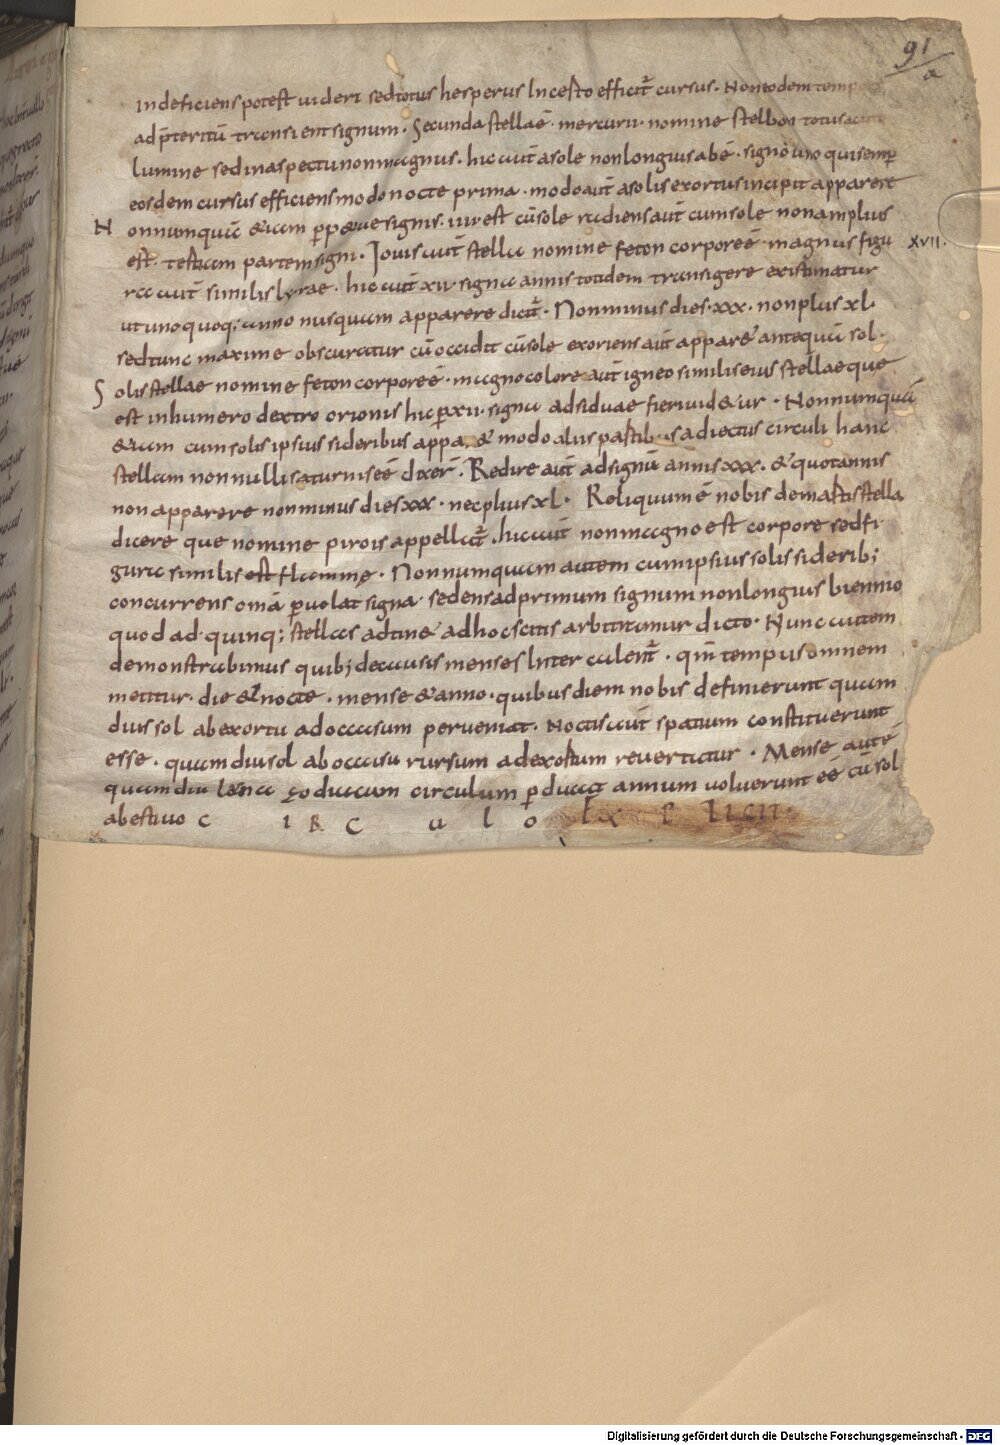 91
a
indeficiens potest uideri sed totus hesperus Incesto efficit̄ cursus · Non eodem
ad p̄teritū transiens signum · Secunda stellaē · mercurii · nomine stelbon totus
lumine sed in aspectu non magnus · hic aūt a sole non longius abē · signo uno qui semp̄
eosdem cursus efficiens modo nocte prima · modo aūt a solis exortus incipit apparere
N onnumquā &iam p̄p&uae signis · iiii est cū sole radiens aūt cum sole non amplius
est · testiam partem signi · Iouis aūt stella nomine feton corpore ē · magnus figu XVII ·
ra aūt similis lyrae · hic aūt xii · signa annis totidem transigere existimatur
ut uno quoq; anno nusquam apparere dicit̄ · Non minus dies · xxx · non plus xl ·
sed tunc maxime obscuratur cū occidit cū sole exoriens aūt appar& antequā sol ·
S olis stellae nomine feton corpore ē · magno colore aūt igneo similis eius stellae que
est in humero dextro orionis hic p̄ xii · signa adsiduae fieri uid&ur · Nonnumquā
&iam cum solis ipsius sideribus appa & modo aliis partib us adiectus circuli hanc
stellam nonnulli saturni seē dixer̄ · Redire aūt ad signū annis xxx · & quotannis
non apparere non minus dies xxx · nec plius xl · Reliquum ē nobis de martis stella
dicere que nomine pirois appellat̄ · hic aūt non magno est corpore sed fi
gura similis est flamme · Nonnumquam autem cum ipsius solis siderib;
concurrens omā p̄uolat signa · sedens ad primum signum non longius biennio
quod ad · quinq; stellas adtin& ad hoc scitis arbitramur dicto · Nunc autem
demonstrabimus quib; de causis menses Inter calent̄ · qm̄ tempus omnem
metitur · die & nocte · mense & anno · quibus diem nobis definierunt quam
diu sol ab exortu ad occasum perueniat · Noctis aūt spatium constituerunt
esse · quam diu sol ab occasu rursum ad exortum reuertatur · Mense autē
quam diu luna zodiacum circulum p̄ducat annum uoluerunt eē cū sol
ab estiuo c i R C u l o